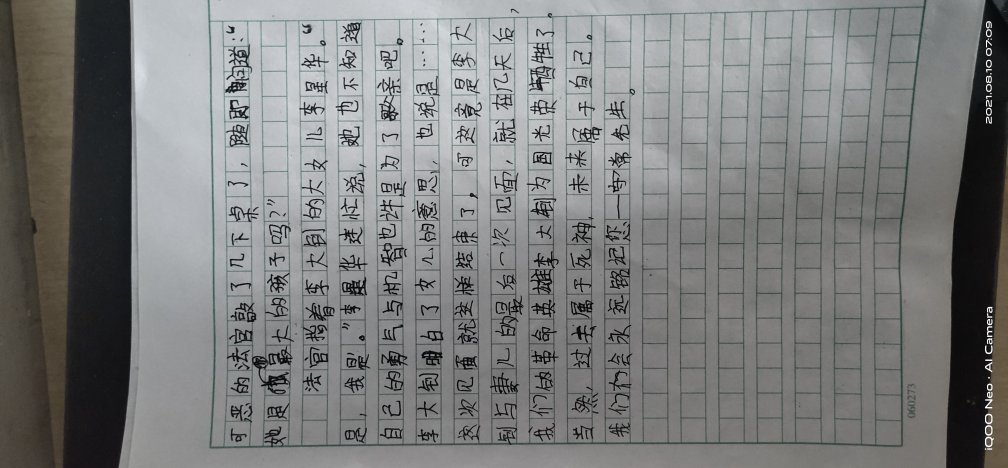 可恶的法官敲了几下桌子，随即问道：“
她是你最大的孩子吗？”
法官指着李大钊的大女儿李星华。“
是，我是。”李星华连忙说，她也不知道
自己的勇气与机智也许是为了父亲吧。
李大钊明白了女儿的意思，也说是……
这次见面就这样结束了，可这竟是李大
钊与妻儿的最后一次见面，就在几天后，
我们的革命英雄李大钊为国光荣牺牲了。
当然，过去属于死神，未来属于自己。
我们会永远铭记您—守常先生。
060273
2021.08.10 07:09
iQOO Neo · AI Camera